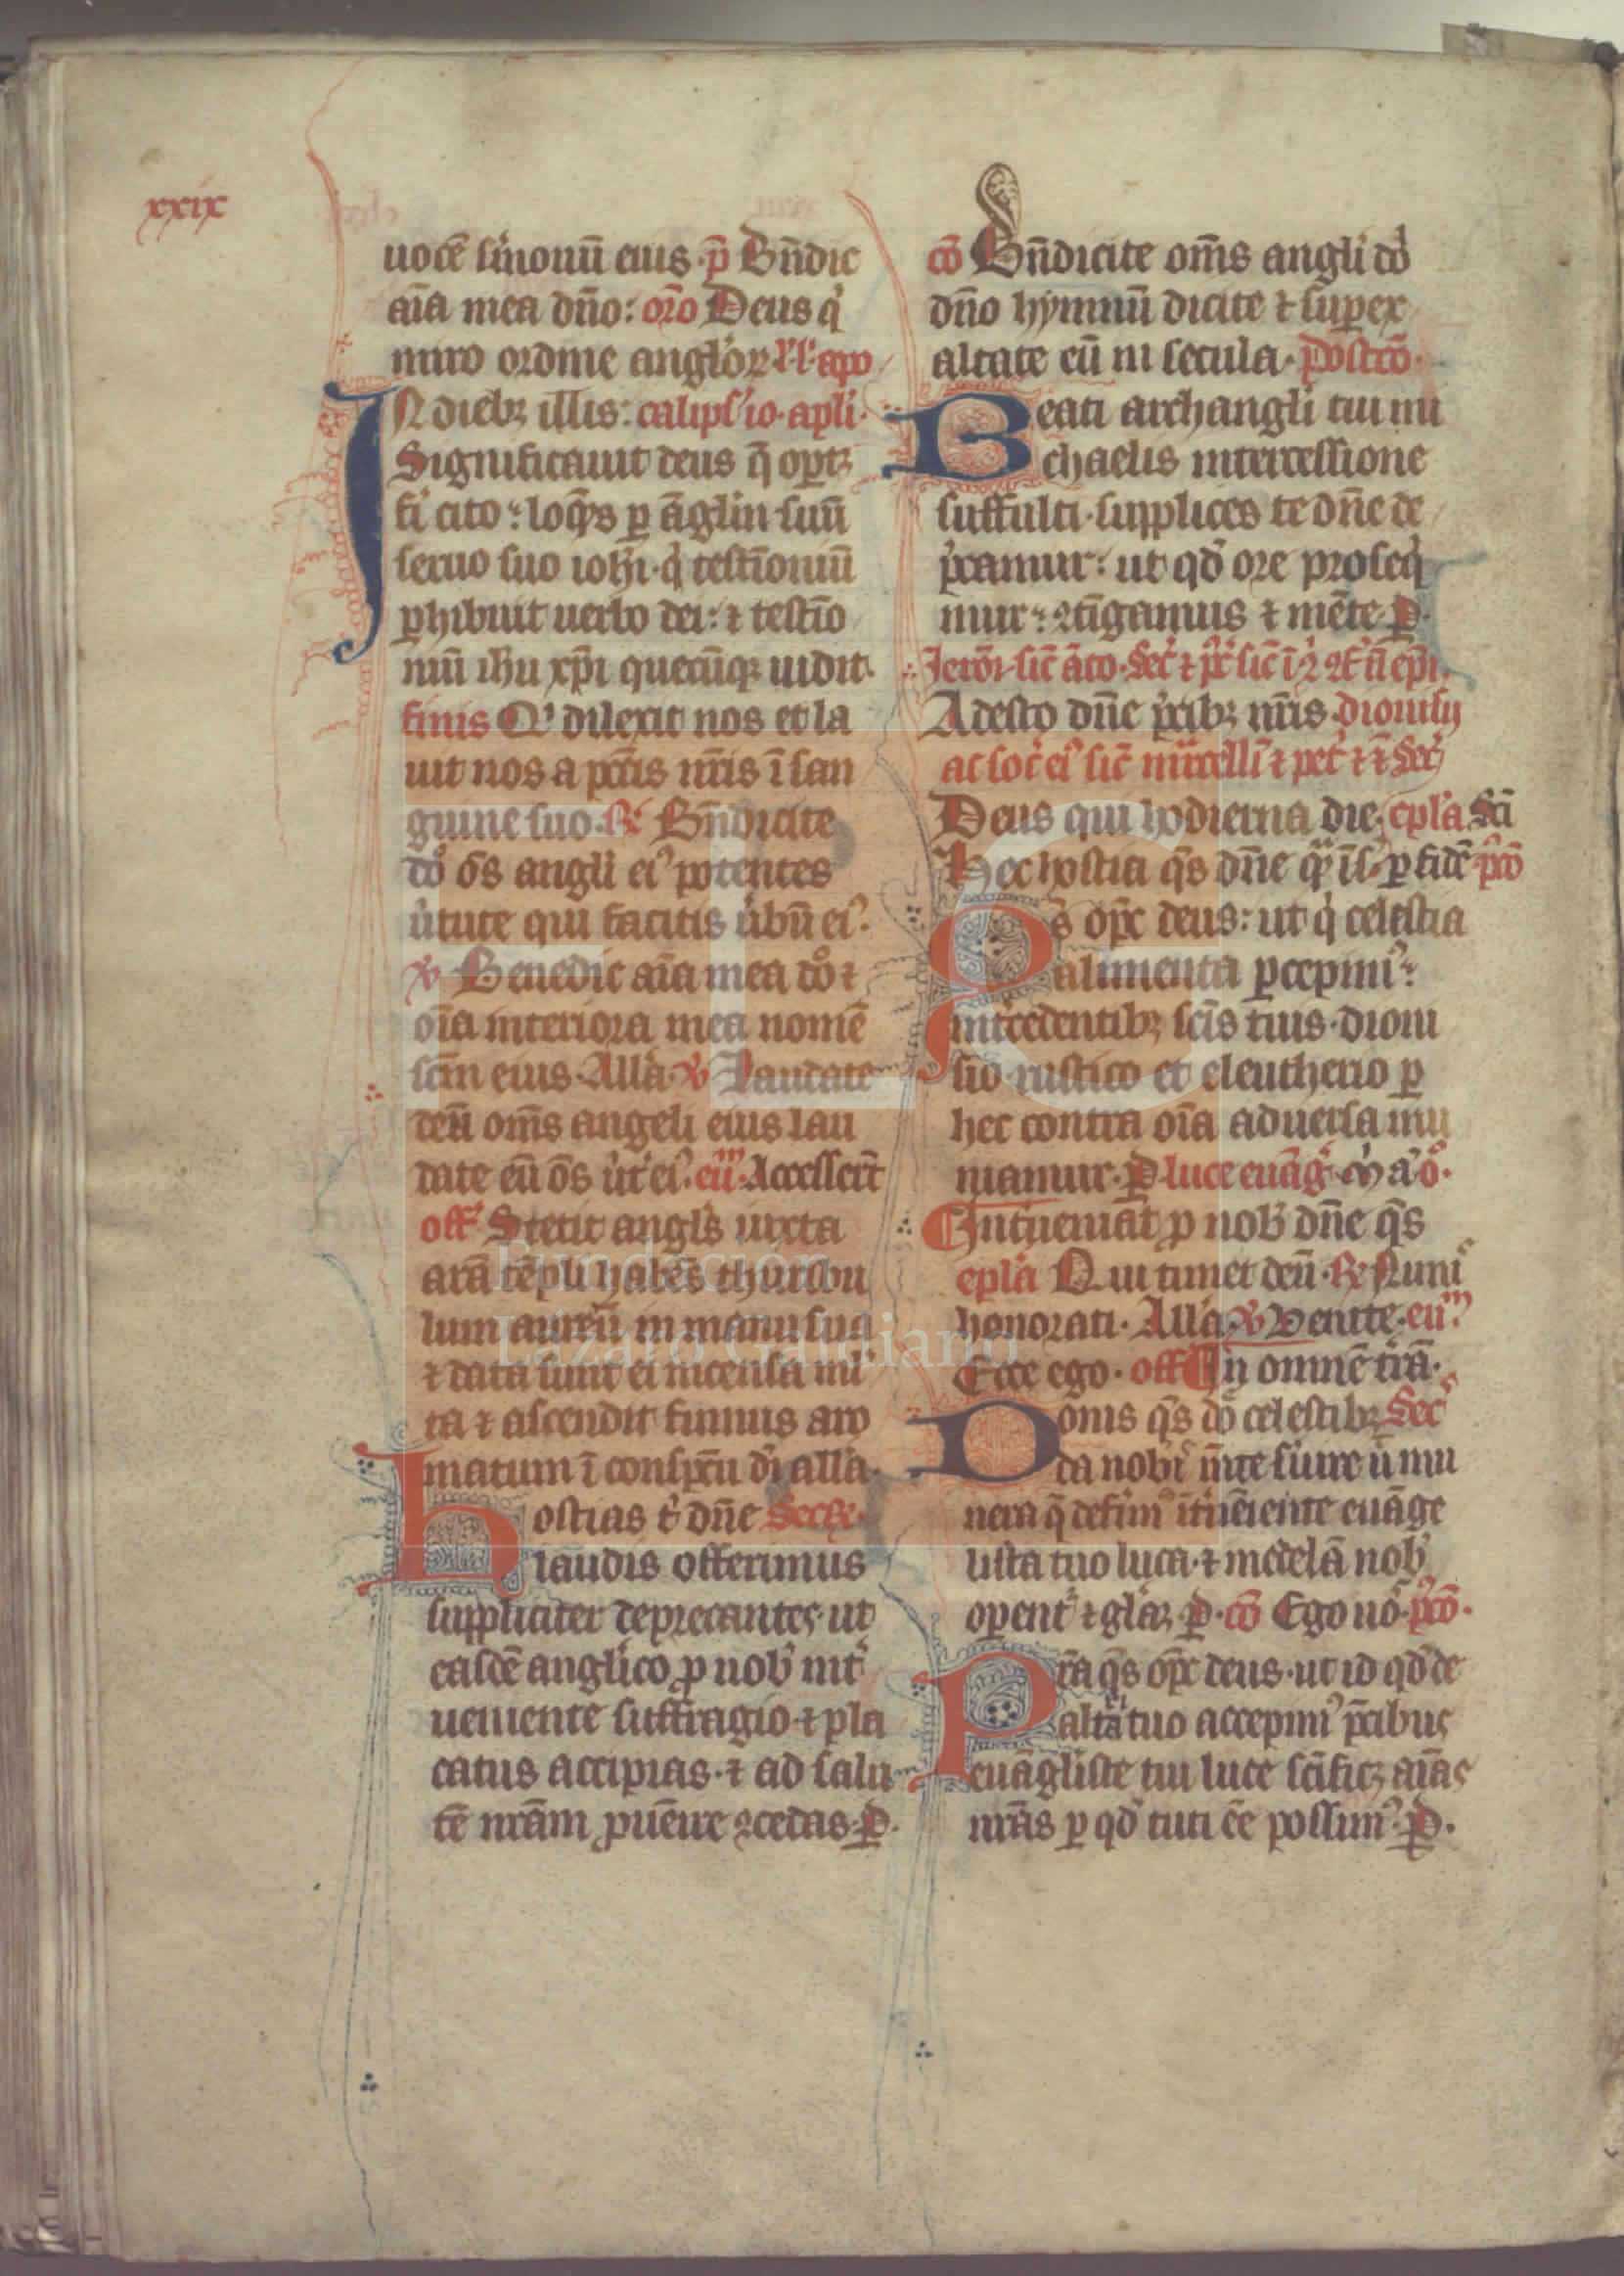 xxix
uocē s̓monū eius. p̄ Bn̄dic
aīa mea dn̄o: or̄o Deus q̓
miro ordine angl̓oꝝ l̓c̓ l̓. apo
IN diebꝫ illis: calipſ̓ io. apl̓i.
Significauit deus q̄ oꝑtꝫ
fi̓ cito: loq̄ns ꝑ āglm̄ suū
seruo suo ioh̄i. q̓ testīoniū
ꝑhibuit uerbo dei: ⁊ testīo
niū ih̄u xp̄i quecūqꝫ uidit.
finis Q̓ dilexit nos et la
uit nos a pc̄c̄is nr̄is ī san
guine suo. ℟ Bn̄dicite
do̓ ōs angli ei̓ potentes
u̓tute qui facitis u̓bū ei̓.
℣ Benedic aīa mea do̓ ⁊
oīa interiora mea nomē
scm̄ eius. All̓a. ℣ Laudate
deū om̄s angeli eius lau
date eū ōs u̓t̓ ei̓. eu̅m̅. Accesser̄t
off̓. Stetit angl̓s iuxta
arā tēpli habēs thuribu
lum aureū in manu sua
⁊ data sunt ei incensa ml̓
ta ⁊ ascendit fumus aro
matum ī conspc̄tu dī all̓a.
hostias t̓ dn̄e Secr̓.
laudis offerimus
suppliciter deprecantes. ut
easdē angl̓ico ꝓ nob̓ int̓
ueniente suffragio. ⁊ pla
catus accipias. ⁊ ad salu
tē nrām ꝓuēire ꝯcedas. P̱.
cō Bn̄dicite om̄s angl̓i do̓
dn̄o hymnū dicite ⁊ suꝑex
altate eū in secula. postcō.
Beati archangl̓i tui mi
chaelis intercessione
suffulti. supplices te dn̄e de
p̓camur: ut qd̓ ore proseq̓
mur: ꝯtīgamus ⁊ mēte. P̱.
Adesto dn̄e p̓cibꝫ nr̄is. dionisij
ac soc̓ ei̓ sic̄ mr̓cell̓i ⁊ pet̓
Deus qui hodierna die. epl̓a Scī
Hec hostia qs̄ dn̄e ꝑ fidē. p̓cō
Qs̄ op̄c deus: ut q̓ celestia
alimenta ꝑcepim̓:
int̓cedentibꝫ scīs tuis. dioni
sio. rustico et eleutherio ꝑ
hec contra oīa aduersa mu
niamur. P̱. luce euāg̓.
Int̓ueniāt ꝓ nob̓ dn̄e qs̄
epl̓a Qui timet deū. ℟ Nimi̓
honorati. All̓a ℣ Venite. eu̅m̅.
Ecce ego. off̓ In omnē t̓rā.
Donis qs̄ dō celestibꝫ Secr̓
da nobi̓ mēte s̓uire u̓ mu
nera q̄ defim̓ īt̓uēiente euāge
lista tuo luca. ⁊ medelā nob̓
oꝑent̓ ⁊ gl̓aꝫ. P̱. cō Ego uo̓. p̓cō.
Prā qs̄ op̄c deus. ut id qd̓ de
altā tuo accepim̓ p̄cibus
euāgl̓iste tui luce scīficꝫ aīas
nrās ꝑ qd̓ tuti ēe possim̓. P̱.
Fundación
Lázaro Galdiano